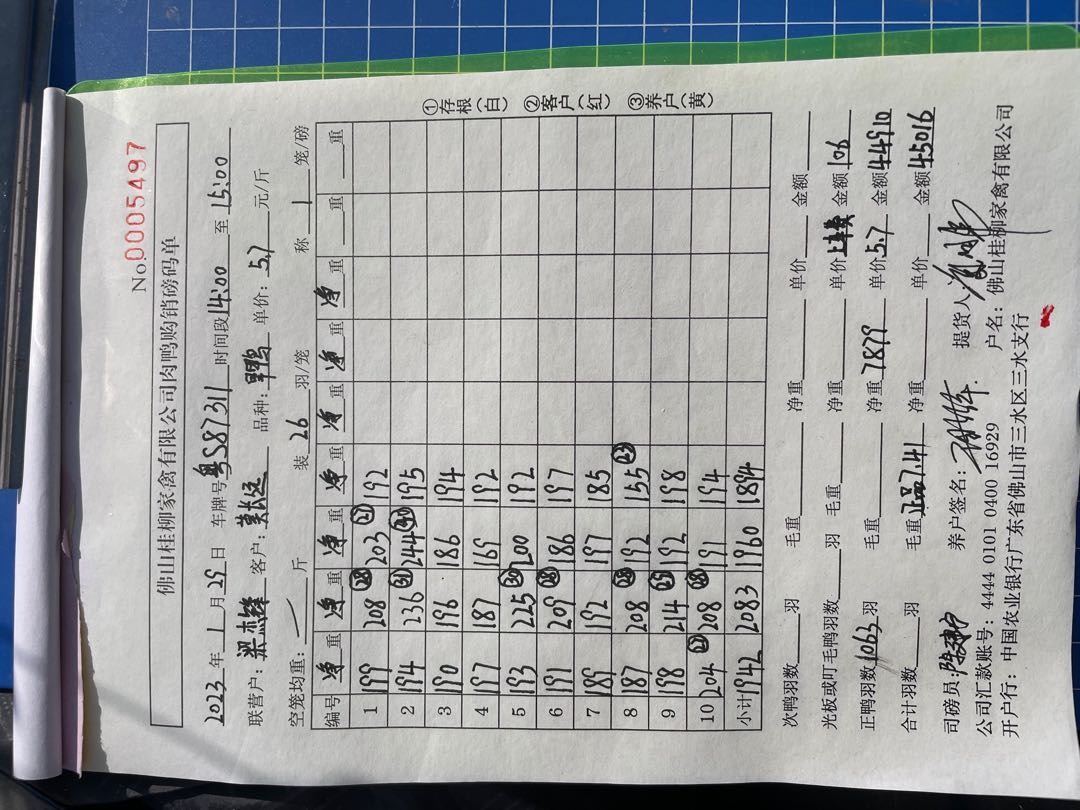 No.0005497
佛山桂柳家禽有限公司肉鸭购销磅码单
2023年1月29日 车牌号粤S87311 时间段14:00至15:00
联营户: 客户: 品种: 单价:5.7元/斤
空笼均重:/斤 装26羽/笼 称1笼/磅
编号 净重 净重 净重 净重 净重 净重 净重 重 重
1 199 208 ㉘ 203 ㉗ 192
2 194 236 ㉛ 244 ㉚ 195
3 190 196 186 194
4 197 187 169 192
5 193 225 ㉚ 200 192
6 191 209 ㉘ 186 197
7 189 192 197 185
8 187 208 ㉘ 192 155 ㉓
9 198 214 ㉙ 192 198
10 204 ㉗ 208 ㉘ 191 194
小计 1942 2083 1960 1894
次鸭羽数 羽 毛重 净重 单价 金额
光板或叮毛鸭羽数 羽 毛重 净重 单价 金额106
正鸭羽数1063羽 毛重 净重7879 单价5.7 金额44910
合计羽数 羽 毛重正品7.41 净重 单价 金额45016
司磅员: 养户签名: 提货人
公司汇款账号:4444 0101 0400 16929 户名:佛山桂柳家禽有限公司
开户行:中国农业银行广东省佛山市三水区三水支行
①存根(白) ②客户(红) ③养户(黄)